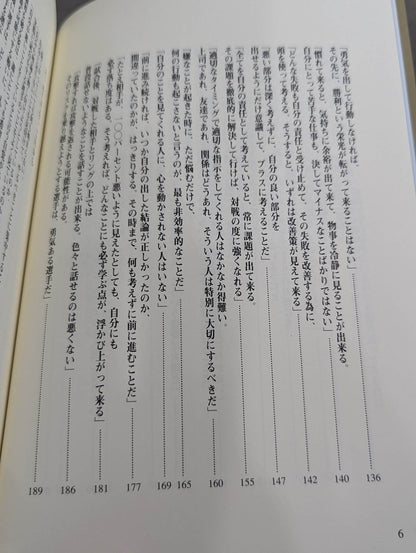 「勇気を出して行動しなければ、
その先に、勝利という栄光が転がって来ることはない」
136
「慣れて来ると、気持ちに余裕が出て来て、物事を冷静に見ることが出来る。
自分にとって苦手な仕事も、決してマイナスなことばかりではない」
140
「どんな失敗も自分の責任と受け止めて、その失敗を改善する為に、
頭を使って考える。そうすると、いずれは改善策が見えて来る」
142
「悪い部分は深く考えずに、自分の良い部分を
のようにだけ意識して、プラスに考えることだ」
147
「全てを自分の責任として考えていると、常に課題が出て来る。
その課題を徹底的に解決して行けば、対戦の度に強くなれる」
155
「適切なタイミングで適切な指示をしてくれる人はなかなか得難い。
上司であれ、友達であれ、関係はどうあれ、そういう人は特別に大切にするべきだ」
160
「嫌なことが起きた時に、ただ悩むだけで、
何の行動も起こさないと言うのが、最も非効率的なことだ」
165
「自分のことを見てくれる人に、心を動かされない人はいない」
169
「前に進み続ければ、いつか自分の出した結論が正しかったのか、
間違っていたのかは、はっきりする。その時まで、何も考えずに前に進むことだ」
177
「たとえ相手が、一〇〇パーセント悪いように見えたとしても、自分にも
必ず落ち度はある。そう考えれば、どんなことにも必ず学ぶ点が、浮かび上がって来る」
181
「試合後、対戦した相手とリングの上では
普段話せないようなことを話すことが出来る。色々と話せるのは悪くない」
186
「攻撃くれば攻撃し返される可能性がある。
勇気ある選手だ」
189
6